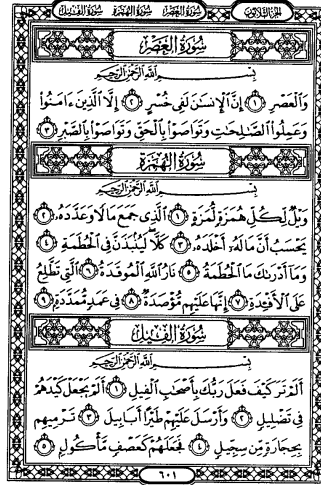 الجزء الثلاثون سورة العصر سورة الهمزة سورة الفيل
سُورَةُ العَصْرِ
بِسْمِ اللَّهِ الرَّحْمَٰنِ الرَّحِيمِ
وَالْعَصْرِ ١ إِنَّ الْإِنسَٰنَ لَفِى خُسْرٍ ٢ إِلَّا الَّذِينَ ءَامَنُوا۟
وَعَمِلُوا۟ الصَّٰلِحَٰتِ وَتَوَاصَوْا۟ بِالْحَقِّ وَتَوَاصَوْا۟ بِالصَّبْرِ ٣
سُورَةُ الهُمَزَةِ
بِسْمِ اللَّهِ الرَّحْمَٰنِ الرَّحِيمِ
وَيْلٌ لِّكُلِّ هُمَزَةٍ لُّمَزَةٍ ١ الَّذِى جَمَعَ مَالًا وَعَدَّدَهُۥ ٢
يَحْسَبُ أَنَّ مَالَهُۥٓ أَخْلَدَهُۥ ٣ كَلَّا لَيُنۢبَذَنَّ فِى الْحُطَمَةِ ٤
وَمَآ أَدْرَىٰكَ مَا الْحُطَمَةُ ٥ نَارُ اللَّهِ الْمُوقَدَةُ ٦ الَّتِى تَطَّلِعُ
عَلَى الْأَفْـِٔدَةِ ٧ إِنَّهَا عَلَيْهِم مُّؤْصَدَةٌ ٨ فِى عَمَدٍ مُّمَدَّدَةٍۭ ٩
سُورَةُ الفِيلِ
بِسْمِ اللَّهِ الرَّحْمَٰنِ الرَّحِيمِ
أَلَمْ تَرَ كَيْفَ فَعَلَ رَبُّكَ بِأَصْحَٰبِ الْفِيلِ ١ أَلَمْ يَجْعَلْ كَيْدَهُمْ
فِى تَضْلِيلٍ ٢ وَأَرْسَلَ عَلَيْهِمْ طَيْرًا أَبَابِيلَ ٣ تَرْمِيهِم
بِحِجَارَةٍ مِّن سِجِّيلٍ ٤ فَجَعَلَهُمْ كَعَصْفٍ مَّأْكُولٍۭ ٥
٦٠١